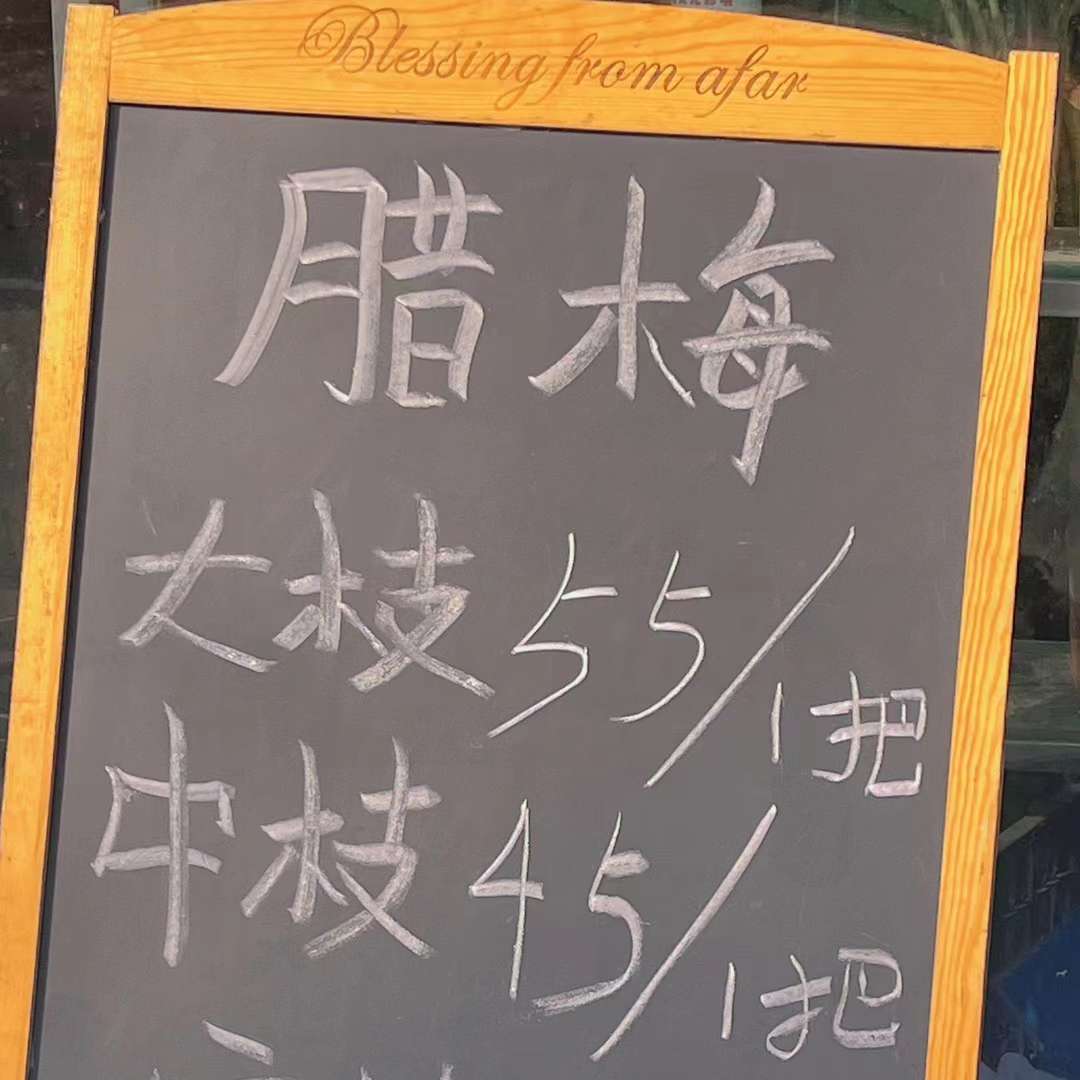 Blessing from afar
腊梅
大枝 55/1把
中枝 45/1把